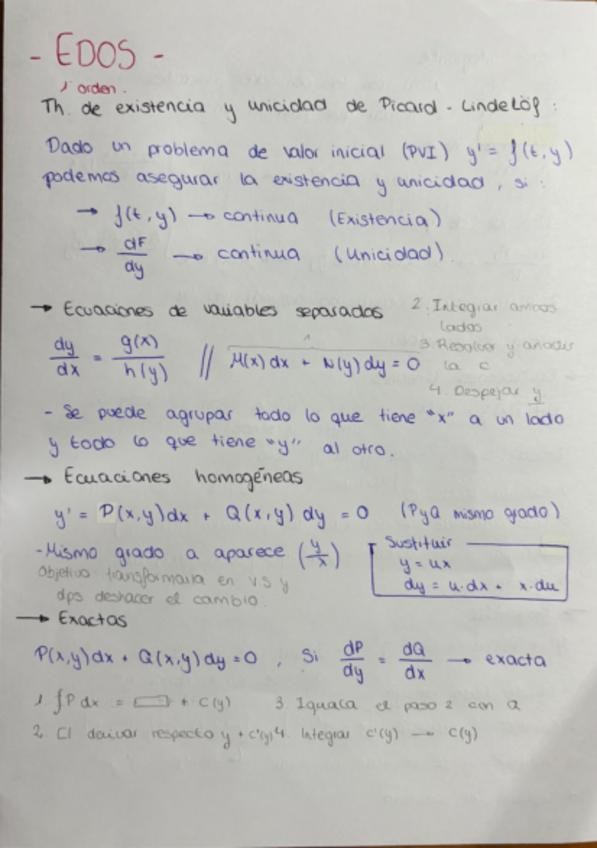 - EDOS -
1º orden.
Th. de existencia y unicidad de Picard - Lindelöf :
Dado un problema de valor inicial (PVI) y' = f(t, y)
podemos asegurar la existencia y unicidad, si :
→ f(t, y) → continua (Existencia)
→ dF/dy → continua (Unicidad).
→ Ecuaciones de variables separadas
2. Integrar ambos
lados
3. Resolver y añadir
la C
4. Despejar y
dy/dx = g(x)/h(y) // M(x) dx + N(y) dy = 0
- Se puede agrupar todo lo que tiene "x" a un lado
y todo lo que tiene "y" al otro.
→ Ecuaciones homogéneas
y' = P(x,y)dx + Q(x,y) dy = 0 (P y Q mismo grado)
- Mismo grado o aparece (y/x)
Objetivo transformarla en v.s y
dps deshacer el cambio.
Sustituir
y = ux
dy = u·dx + x·du
→ Exactas
P(x,y)dx + Q(x,y)dy = 0 , Si dP/dy = dQ/dx → exacta
1. ∫P dx = ▭ + C(y) 3 Igualar el paso 2 con Q
2. derivar respecto y + c'(y) 4. Integrar c'(y) → C(y)